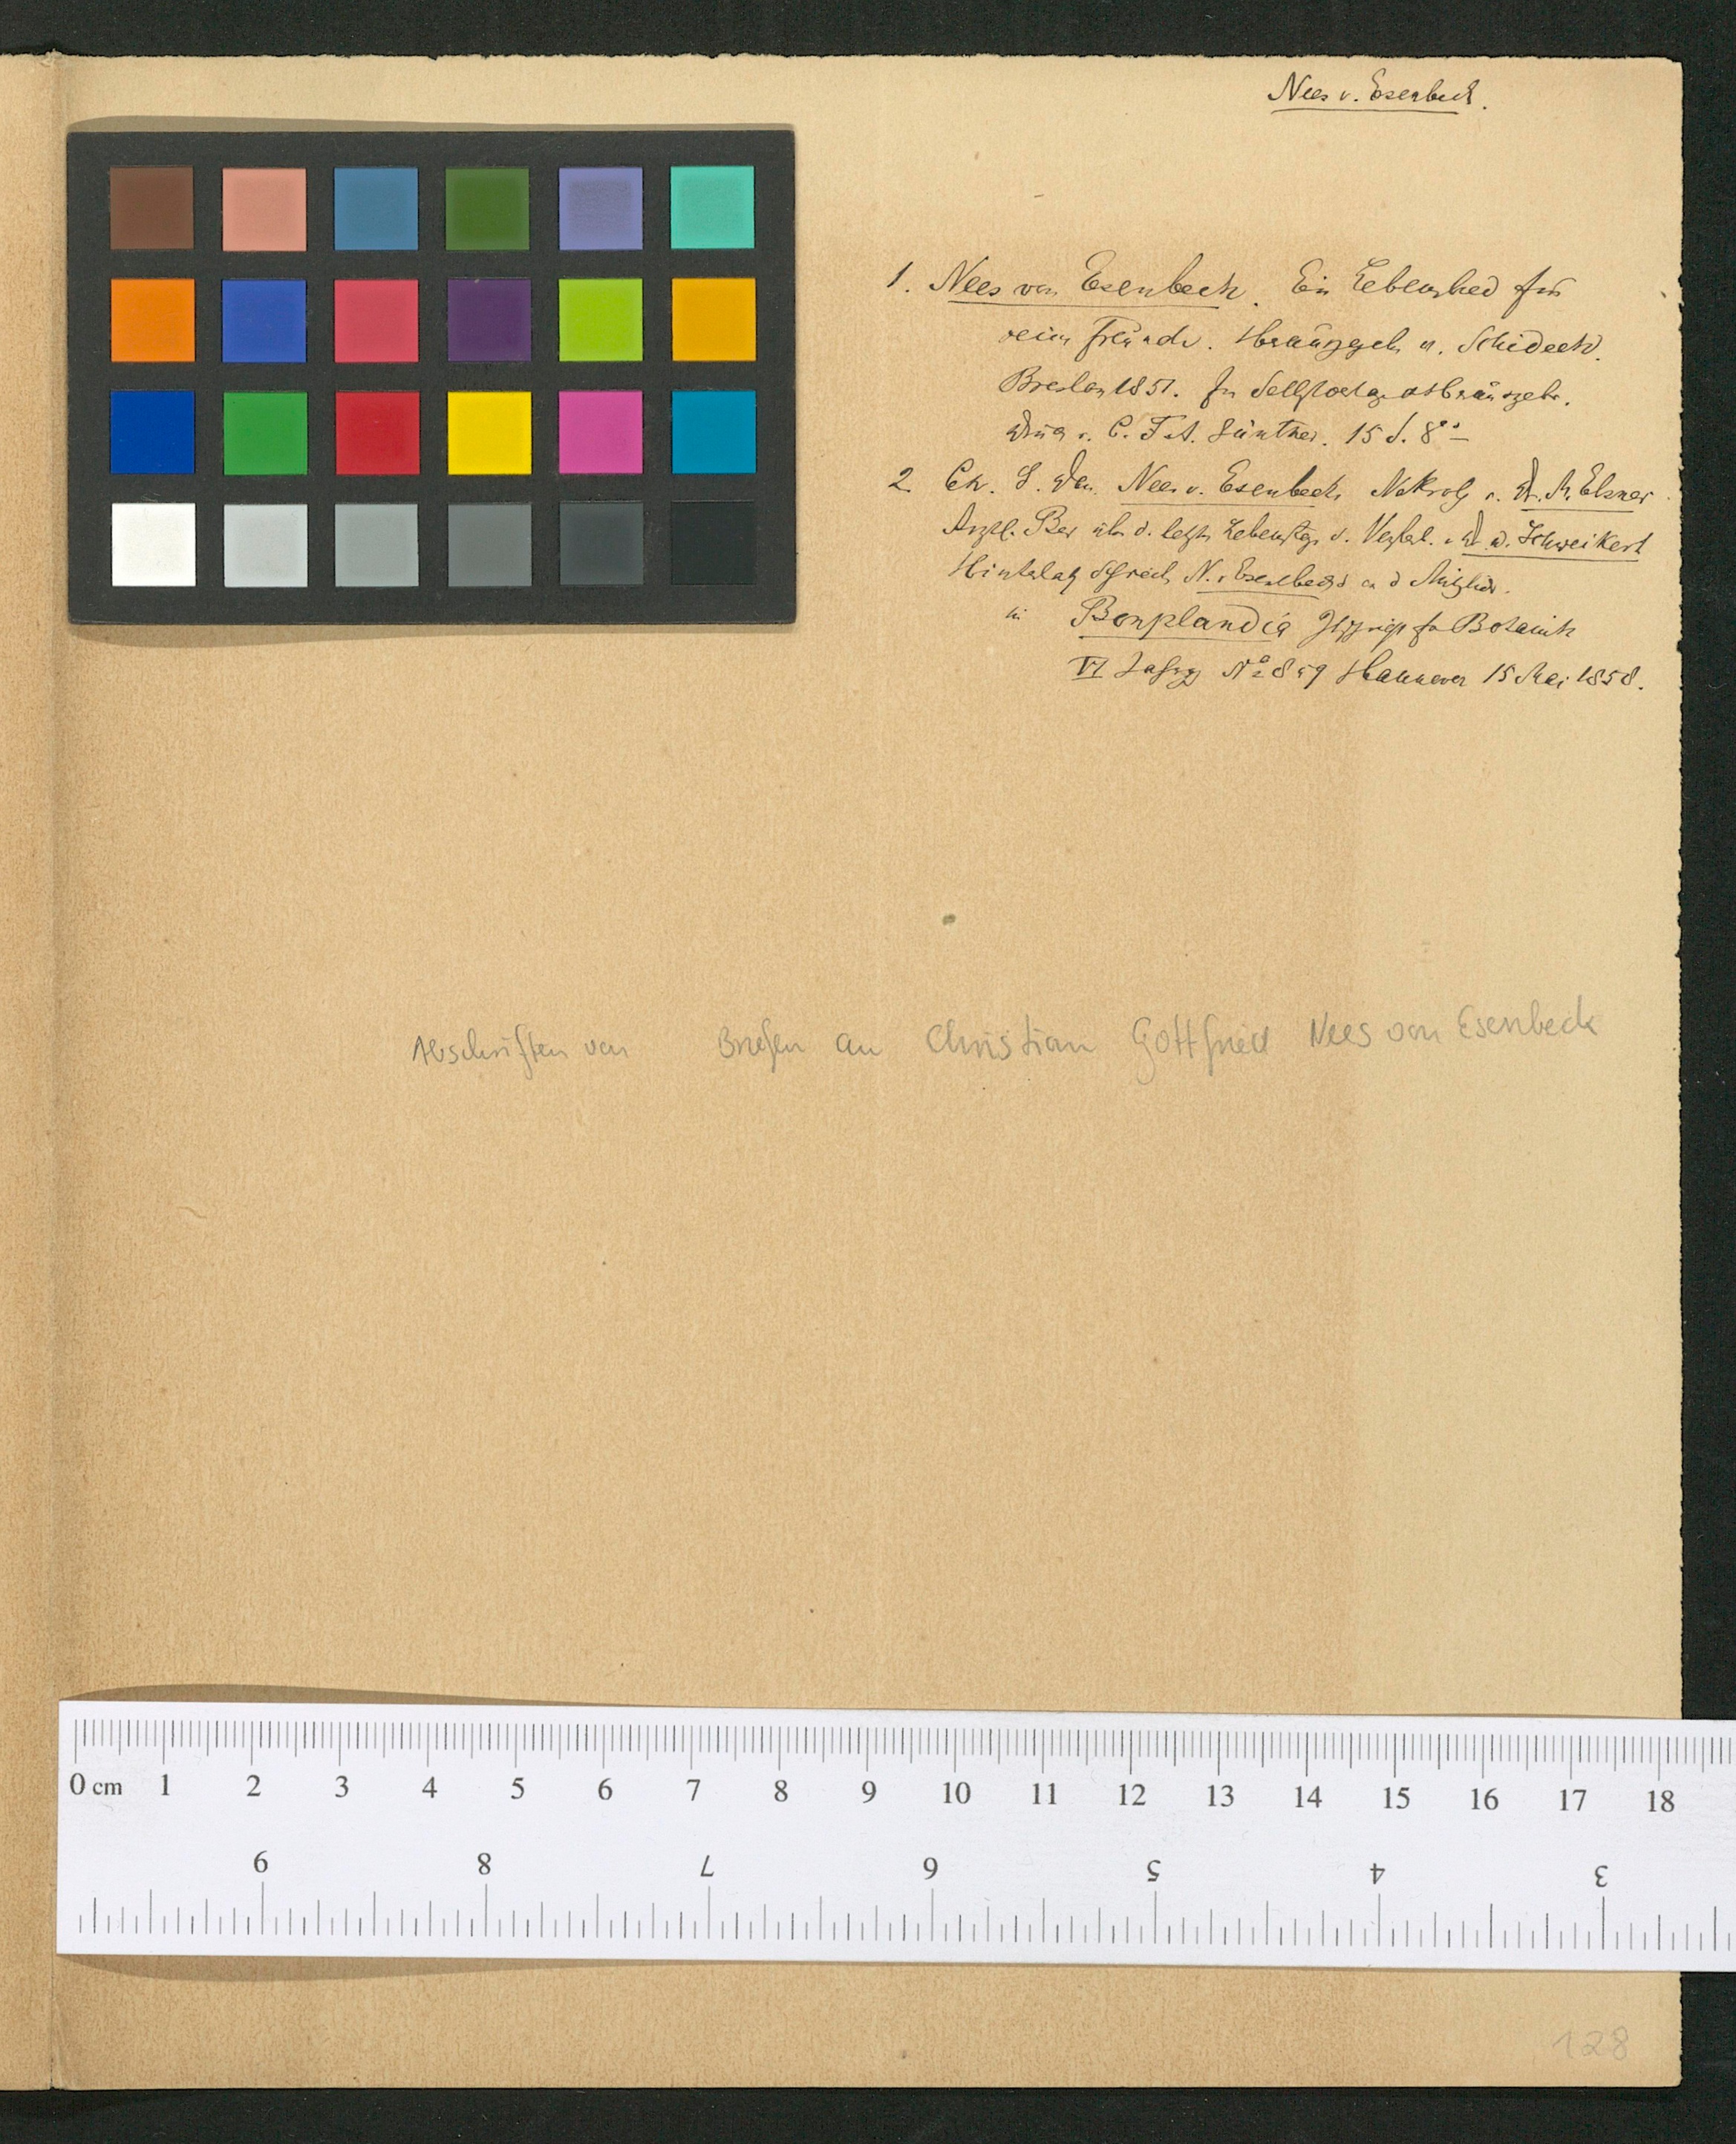 Nees v. Esenbeck.
1. Nees von Esenbeck. Ein Lebensbild für
seine Freunde. Herausgeb. v. Schideck.
Breslau 1851. Im Selbstverlag d. Herausgebr.
Druck v. C. F. A. Günther. 15 S. 8°
2. Ch. G. Dan. Nees v. Esenbeck Nekrolg v. Dr. M. Elsner
Ärztl. Ber über d. letzt. Lebenstage d. Dr. W. Schweikert
N. v. Esenbecks an d Mitglied.
in Bonplandia Ztschrift für Botanik
VI Jahrg No 8 u 9 Hannover 15 Mai 1858.
Abschriften von Briefen an Christian Gottfried Nees von Esenbeck
0 cm 1 2 3 4 5 6 7 8 9 10 11 12 13 14 15 16 17 18
9 8 7 6 5 4 3
128